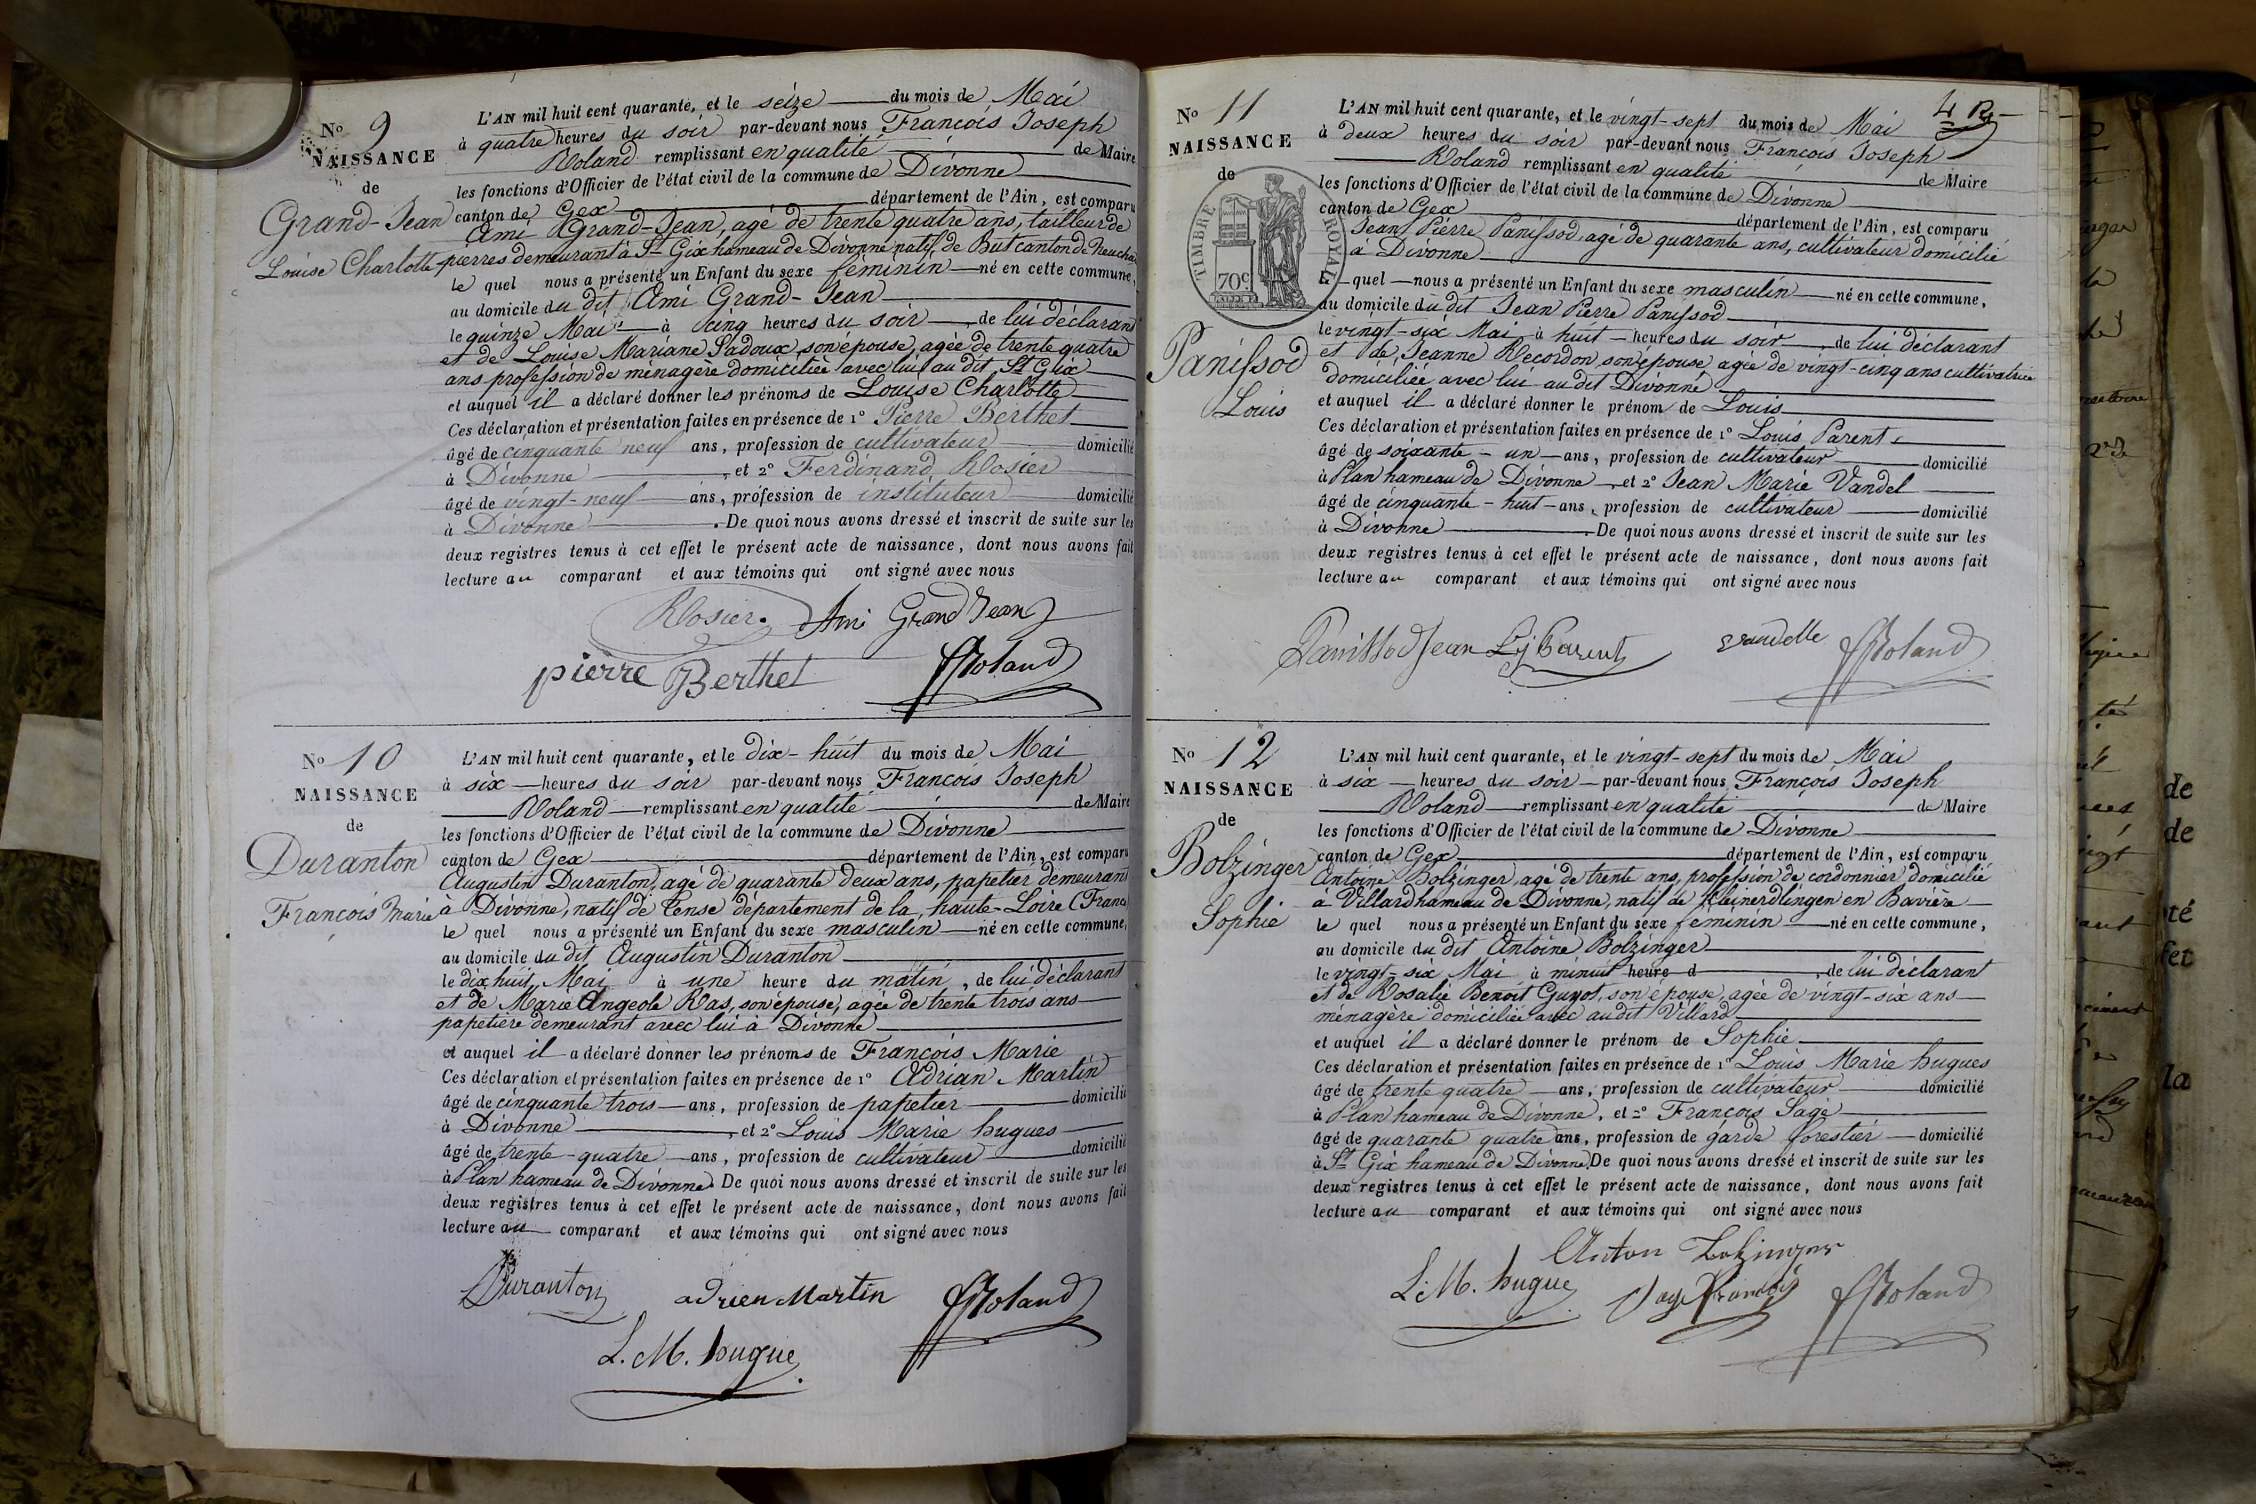 No 9
NAISSANCE
de
Grand-Jean
Louise Charlotte
L'AN mil huit cent quarante, et le seize du mois de Mai
à quatre heures du soir par-devant nous François Joseph
Roland remplissant en qualité de Maire
les fonctions d'Officier de l'état civil de la commune de Divonne
canton de Gex département de l'Ain, est comparu
Ami Grand-Jean, agé de trente quatre ans, tailleur de
pierres demeurant à St Gix hameau de Divonne natif de But canton de Neuchat
le quel nous a présenté un Enfant du sexe féminin né en cette commune,
au domicile du dit Ami Grand-Jean
le quinze Mai à cinq heures du soir, de lui déclarant
et de Louise Mariane Padoux, son épouse, agée de trente quatre
ans profession de ménagère domiciliée avec lui au dit St Gix
et auquel il a déclaré donner les prénoms de Louise Charlotte
Ces déclaration et présentation faites en présence de 1° Pierre Berthet
âgé de cinquante neuf ans, profession de cultivateur domicilié
à Divonne, et 2° Ferdinand Rosier
âgé de vingt-neuf ans, profession de instituteur domicilié
à Divonne. De quoi nous avons dressé et inscrit de suite sur les
deux registres tenus à cet effet le présent acte de naissance, dont nous avons fait
lecture au comparant et aux témoins qui ont signé avec nous
Rosier. Ami Grand Jean
pierre Berthet Roland
No 10
NAISSANCE
de
Duranton
François Marie
L'AN mil huit cent quarante, et le dix-huit du mois de Mai
à six heures du soir par-devant nous François Joseph
Roland remplissant en qualité de Maire
les fonctions d'Officier de l'état civil de la commune de Divonne
canton de Gex département de l'Ain, est comparu
Augustin Duranton, agé de quarante deux ans, papetier demeurant
à Divonne, natif de Tense département de la haute-Loire (France
le quel nous a présenté un Enfant du sexe masculin né en cette commune,
au domicile du dit Augustin Duranton
le dix huit Mai à une heure du matin, de lui déclarant
et de Marie Angeole Ras, son épouse, agée de trente trois ans
papetière demeurant avec lui à Divonne
et auquel il a déclaré donner les prénoms de François Marie
Ces déclaration et présentation faites en présence de 1° Adrian Martin
âgé de cinquante trois ans, profession de papetier domicilié
à Divonne, et 2° Louis Marie hugues
âgé de trente-quatre ans, profession de cultivateur domicilié
à Plan hameau de Divonne De quoi nous avons dressé et inscrit de suite sur les
deux registres tenus à cet effet le présent acte de naissance, dont nous avons fait
lecture au comparant et aux témoins qui ont signé avec nous
Duranton adrien Martin Roland
L. M. hugue
4
No 11
NAISSANCE
de
TIMBRE ROYAL
70c.
Panissod
Louis
L'AN mil huit cent quarante, et le vingt-sept du mois de Mai
à deux heures du soir par-devant nous François Joseph
Roland remplissant en qualité de Maire
les fonctions d'Officier de l'état civil de la commune de Divonne
canton de Gex département de l'Ain, est comparu
Jean Pierre Panissod, agé de quarante ans, cultivateur domicilié
à Divonne
le quel nous a présenté un Enfant du sexe masculin né en cette commune,
au domicile du dit Jean Pierre Panissod
le vingt-six Mai à huit heures du soir, de lui déclarant
et de Jeanne Recordon, son épouse, agée de vingt-cinq ans cultivatrice
domiciliée avec lui au dit Divonne
et auquel il a déclaré donner le prénom de Louis
Ces déclaration et présentation faites en présence de 1° Louis Parent
âgé de soixante-un ans, profession de cultivateur domicilié
à Plan hameau de Divonne, et 2° Jean Marie Vandel
âgé de cinquante-huit ans, profession de cultivateur domicilié
à Divonne. De quoi nous avons dressé et inscrit de suite sur les
deux registres tenus à cet effet le présent acte de naissance, dont nous avons fait
lecture au comparant et aux témoins qui ont signé avec nous
Panissod Jean Parent vandelle Roland
No 12
NAISSANCE
de
Bolzinger
Sophie
L'AN mil huit cent quarante, et le vingt-sept du mois de Mai
à six heures du soir par-devant nous François Joseph
Roland remplissant en qualité de Maire
les fonctions d'Officier de l'état civil de la commune de Divonne
canton de Gex département de l'Ain, est comparu
Antoine Bolzinger, agé de trente ans, profession de cordonnier domicilié
à Villard hameau de Divonne, natif de Kleinerdlingen en Bavière
le quel nous a présenté un Enfant du sexe féminin né en cette commune,
au domicile du dit Antoine Bolzinger
le vingt-six Mai à minuit heure d, de lui déclarant
et de Rosalie Benoit Guyot, son épouse, agée de vingt-six ans
ménagère domiciliée avec au dit Villard
et auquel il a déclaré donner le prénom de Sophie
Ces déclaration et présentation faites en présence de 1° Louis Marie hugues
âgé de trente quatre ans, profession de cultivateur domicilié
à Plan hameau de Divonne, et 2° François Sage
âgé de quarante quatre ans, profession de garde forestier domicilié
à St Gix hameau de Divonne De quoi nous avons dressé et inscrit de suite sur les
deux registres tenus à cet effet le présent acte de naissance, dont nous avons fait
lecture au comparant et aux témoins qui ont signé avec nous
Anton Bolzinger
L. M. hugue Sage François Roland
de
de
té
fet
la